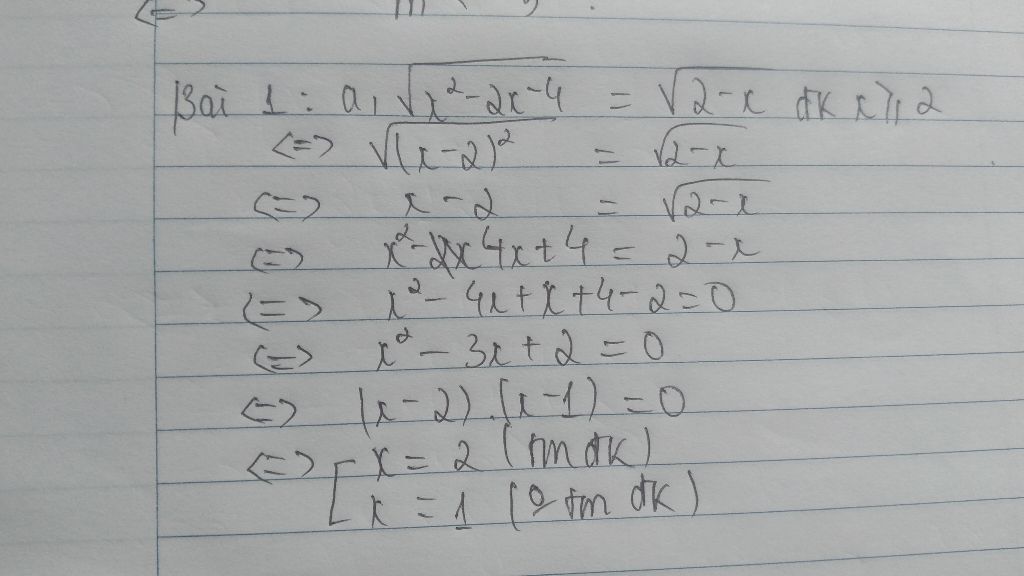 <=>
Bài 1: a, √(x²-2x-4) = √(2-x) đk x ≥ 2
<=> √((x-2)²) = √(2-x)
<=> x-2 = √(2-x)
<=> x²-4x+4 = 2-x
<=> x²-4x+x+4-2=0
<=> x²-3x+2=0
<=> (x-2).(x-1)=0
<=> [ x=2 (tm đk)
x=1 (o tm đk)